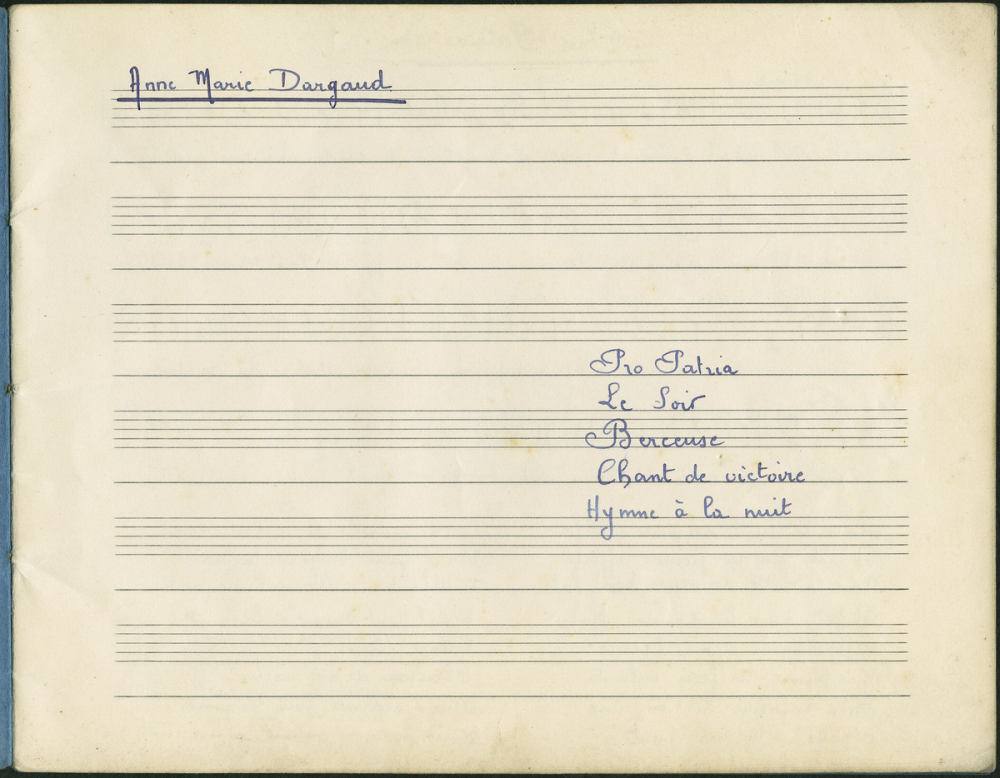 Anne Marie Dargaud
Pro Patria
Le Soir
Berceuse
Chant de victoire
Hymne à la nuit